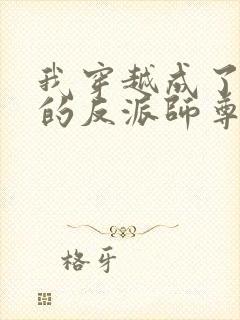 我穿越成了
的反派师尊
格牙